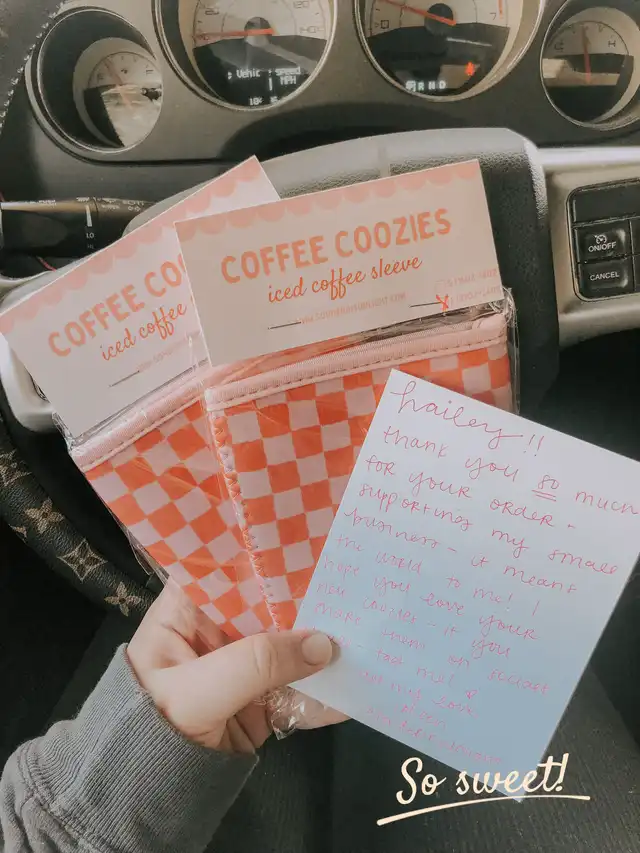 Vehicle speed
MPH
R N D
ON/OFF
CANCEL
LO
HI
COFFEE CO
iced coffee
COFFEE COOZIES
iced coffee sleeve
hailey!!
thank you so much
for your order -
supporting my small
business - it meant
the world to me! I
hope you love your
new coozies - if you
share them on social
tag me!
So sweet!